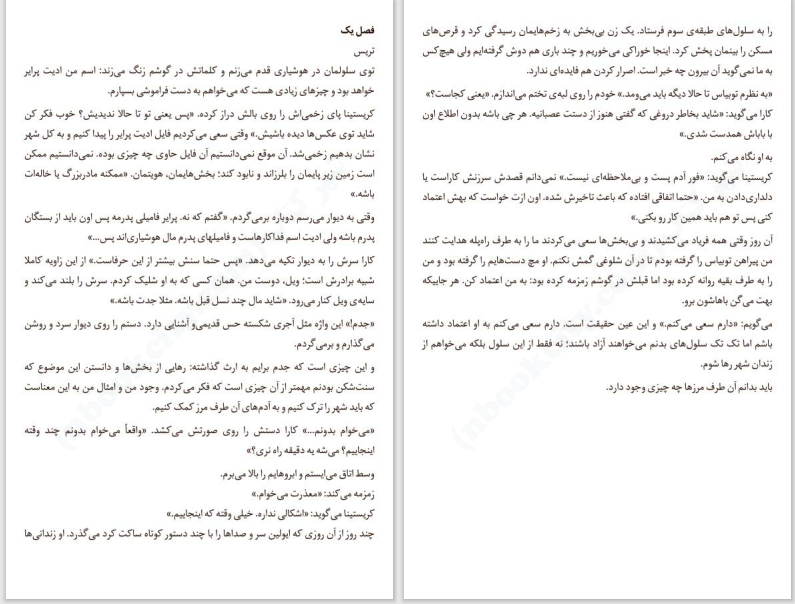 فصل یک
تریس
توی سلولمان در هوشیاری قدم می‌زنم و کلماتش در گوشم زنگ می‌زند: اسم من ادیت پرایر
خواهد بود و چیزهای زیادی هست که می‌خواهم به دست فراموشی بسپارم.
کریستینا پای زخمی‌اش را روی بالش دراز کرده. «پس یعنی تو تا حالا ندیدیش؟ خوب فکر کن
شاید توی عکس‌ها دیده باشیش.» وقتی سعی می‌کردیم فایل ادیت پرایر را پیدا کنیم و به کل شهر
نشان بدهیم زخمی‌شد. آن موقع نمی‌دانستیم آن فایل حاوی چه چیزی بوده. نمی‌دانستیم ممکن
است زمین زیر پایمان را بلرزاند و نابود کند؛ بخش‌هایمان، هویتمان. «ممکنه مادربزرگ یا خاله‌ات
باشه.»
وقتی به دیوار می‌رسم دوباره برمی‌گردم. «گفتم که نه. پرایر فامیلی پدرمه پس اون باید از بستگان
پدرم باشه ولی ادیت اسم فداکارهاست و فامیلهای پدرم مال هوشیاری‌اند پس...»
کارا سرش را به دیوار تکیه می‌دهد. «پس حتما سنش بیشتر از این حرفاست.» از این زاویه کاملا
شبیه برادرش است؛ ویل، دوست من. همان کسی که به او شلیک کردم. سرش را بلند می‌کند و
سایه‌ی ویل کنار می‌رود. «شاید مال چند نسل قبل باشه. مثلا جدت باشه.»
«جدم!» این واژه مثل آجری شکسته حس قدیمی‌و آشنایی دارد. دستم را روی دیوار سرد و روشن
می‌گذارم و برمی‌گردم.
و این چیزی است که جدم برایم به ارث گذاشته: رهایی از بخش‌ها و دانستن این موضوع که
سنت‌شکن بودنم مهمتر از آن چیزی است که فکر می‌کردم. وجود من و امثال من به این معناست
که باید شهر را ترک کنیم و به آدم‌های آن طرف مرز کمک کنیم.
«می‌خوام بدونم...» کارا دستش را روی صورتش می‌کشد. «واقعاً می‌خوام بدونم چند وقته
اینجاییم؟ می‌شه یه دقیقه راه نری؟»
وسط اتاق می‌ایستم و ابروهایم را بالا می‌برم.
زمزمه می‌کند: «معذرت می‌خوام.»
کریستینا می‌گوید: «اشکالی نداره. خیلی وقته که اینجاییم.»
چند روز از آن روزی که ایولین سر و صداها را با چند دستور کوتاه ساکت کرد می‌گذرد. او زندانی‌ها
را به سلول‌های طبقه‌ی سوم فرستاد. یک زن بی‌بخش به زخم‌هایمان رسیدگی کرد و قرص‌های
مسکن را بینمان پخش کرد. اینجا خوراکی می‌خوریم و چند باری هم دوش گرفته‌ایم ولی هیچ‌کس
به ما نمی‌گوید آن بیرون چه خبر است. اصرار کردن هم فایده‌ای ندارد.
«به نظرم توبیاس تا حالا دیگه باید می‌ومد.» خودم را روی لبه‌ی تختم می‌اندازم. «یعنی کجاست؟»
کارا می‌گوید: «شاید بخاطر دروغی که گفتی هنوز از دستت عصبانیه. هر چی باشه بدون اطلاع اون
با باباش همدست شدی.»
به او نگاه می‌کنم.
کریستینا می‌گوید: «فور آدم پست و بی‌ملاحظه‌ای نیست.» نمی‌دانم قصدش سرزنش کاراست یا
دلداری‌دادن به من. «حتما اتفاقی افتاده که باعث تاخیرش شده. اون ازت خواست که بهش اعتماد
کنی پس تو هم باید همین کار رو بکنی.»
آن روز وقتی همه فریاد می‌کشیدند و بی‌بخش‌ها سعی می‌کردند ما را به طرف راه‌پله هدایت کنند
من پیراهن توبیاس را گرفته بودم تا در آن شلوغی گمش نکنم. او مچ دست‌هایم را گرفته بود و من
را به طرف بقیه روانه کرده بود اما قبلش در گوشم زمزمه کرده بود: به من اعتماد کن. هر جاییکه
بهت می‌گن باهاشون برو.
می‌گویم: «دارم سعی می‌کنم.» و این عین حقیقت است. دارم سعی می‌کنم به او اعتماد داشته
باشم اما تک تک سلول‌های بدنم می‌خواهند آزاد باشند؛ نه فقط از این سلول بلکه می‌خواهم از
زندان شهر رها شوم.
باید بدانم آن طرف مرزها چه چیزی وجود دارد.